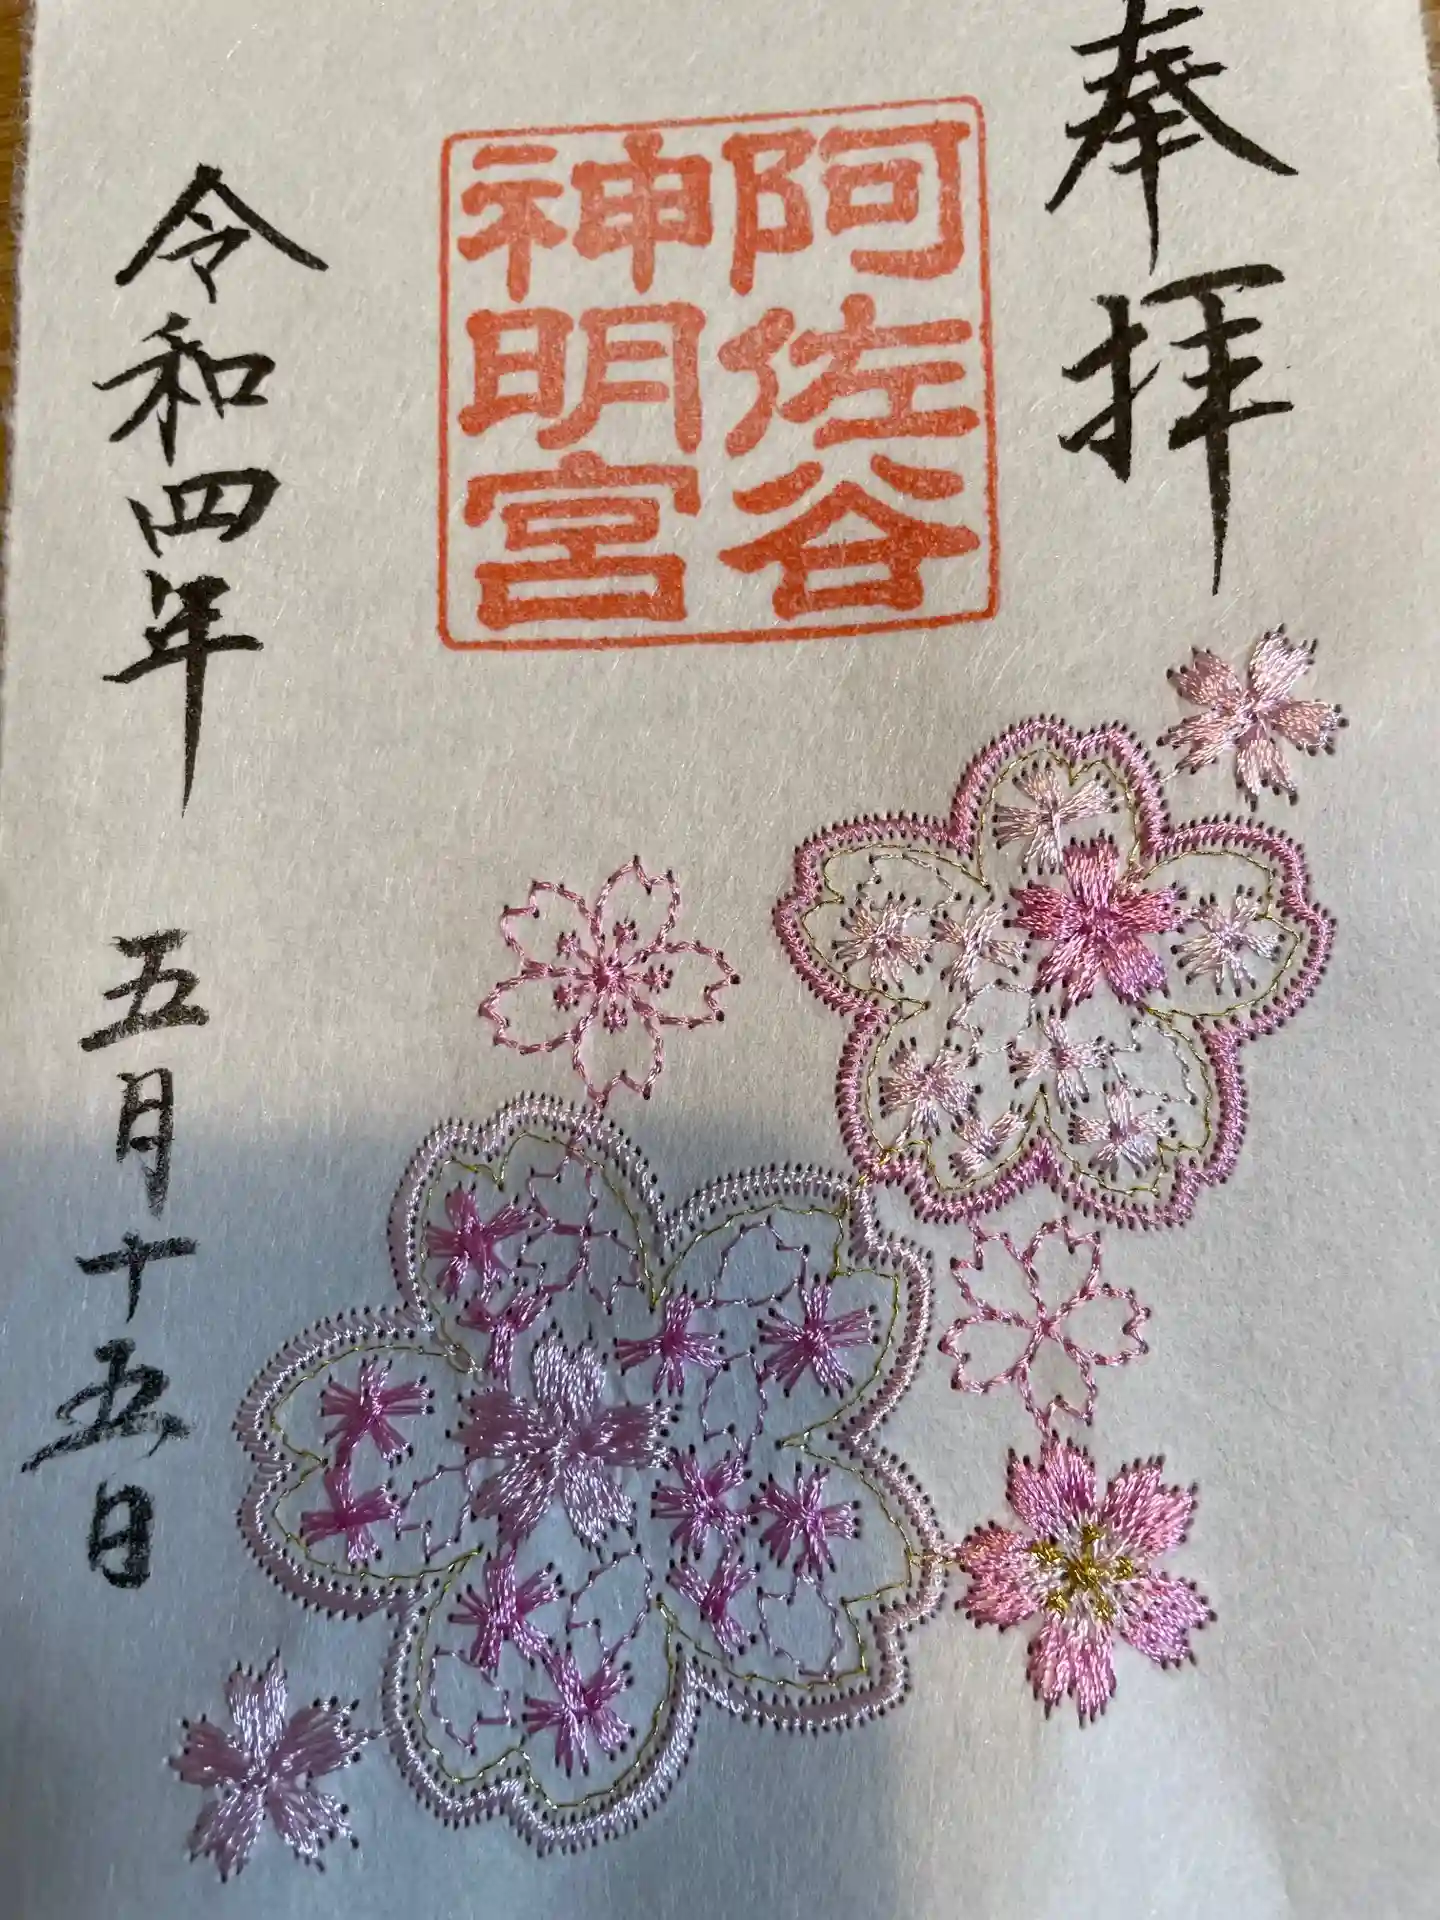 奉拝
阿佐谷
神明宮
令和四年 五月十五日